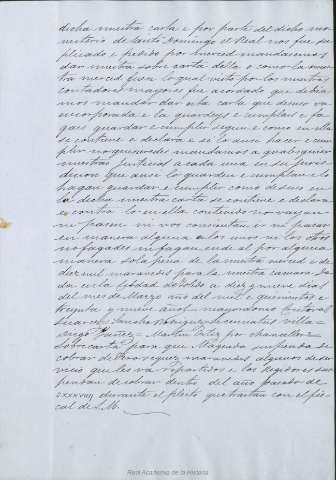 dicha nuestra carta e por parte del dicho mo-
nesterio de Santo Domingo el Real nos fue su-
plicado e pedido por merced mandasemos
dar nuestra sobre carta della o como la nues-
tra merced fuese lo qual visto por los nuestros
contadores mayores fue acordado que debia-
mos mandar dar esta carta que desuso va
encorporada e la guardeys e cumplais e fa-
gais guardar e cumplir segun e como en ella
se contiene e declara e si lo ansi hacer e cum-
plir no quisieredes mandamos a qualesquier
nuestras justicias a cada una en su juris-
dicion que ansi lo guarden e cumplan e lo
hagan guardar e cumplir como desuso en
la dicha nuestra carta se contiene e declara
e contra lo en ella contenido no vayan
ni pasen ni nos consientan ir ni pasar
en manera alguna e los unos ni los otros
no fagades ni fagan ende al por alguna
manera so la pena de la nuestra merced e de
diez mil maravedis para la nuestra camara da-
da en la cibdad de Toledo a diez y nueve dias
del mes de Marzo año del mil e quinientos e
treynta y nueve años. mayordomo
Suarez Sancho
diego Martin Ortiz por chanciller
Sobre carta para que Maqueda suspenda de
cobrar de Rodriguez maravedis algunos de ser-
vicio que les va repartidos e los Regidores sus-
pendan de cobrar dentro del año pasado de
xxxviij durante el pleito que tratan con el fis-
cal de S. M.
Real Academia de la Historia